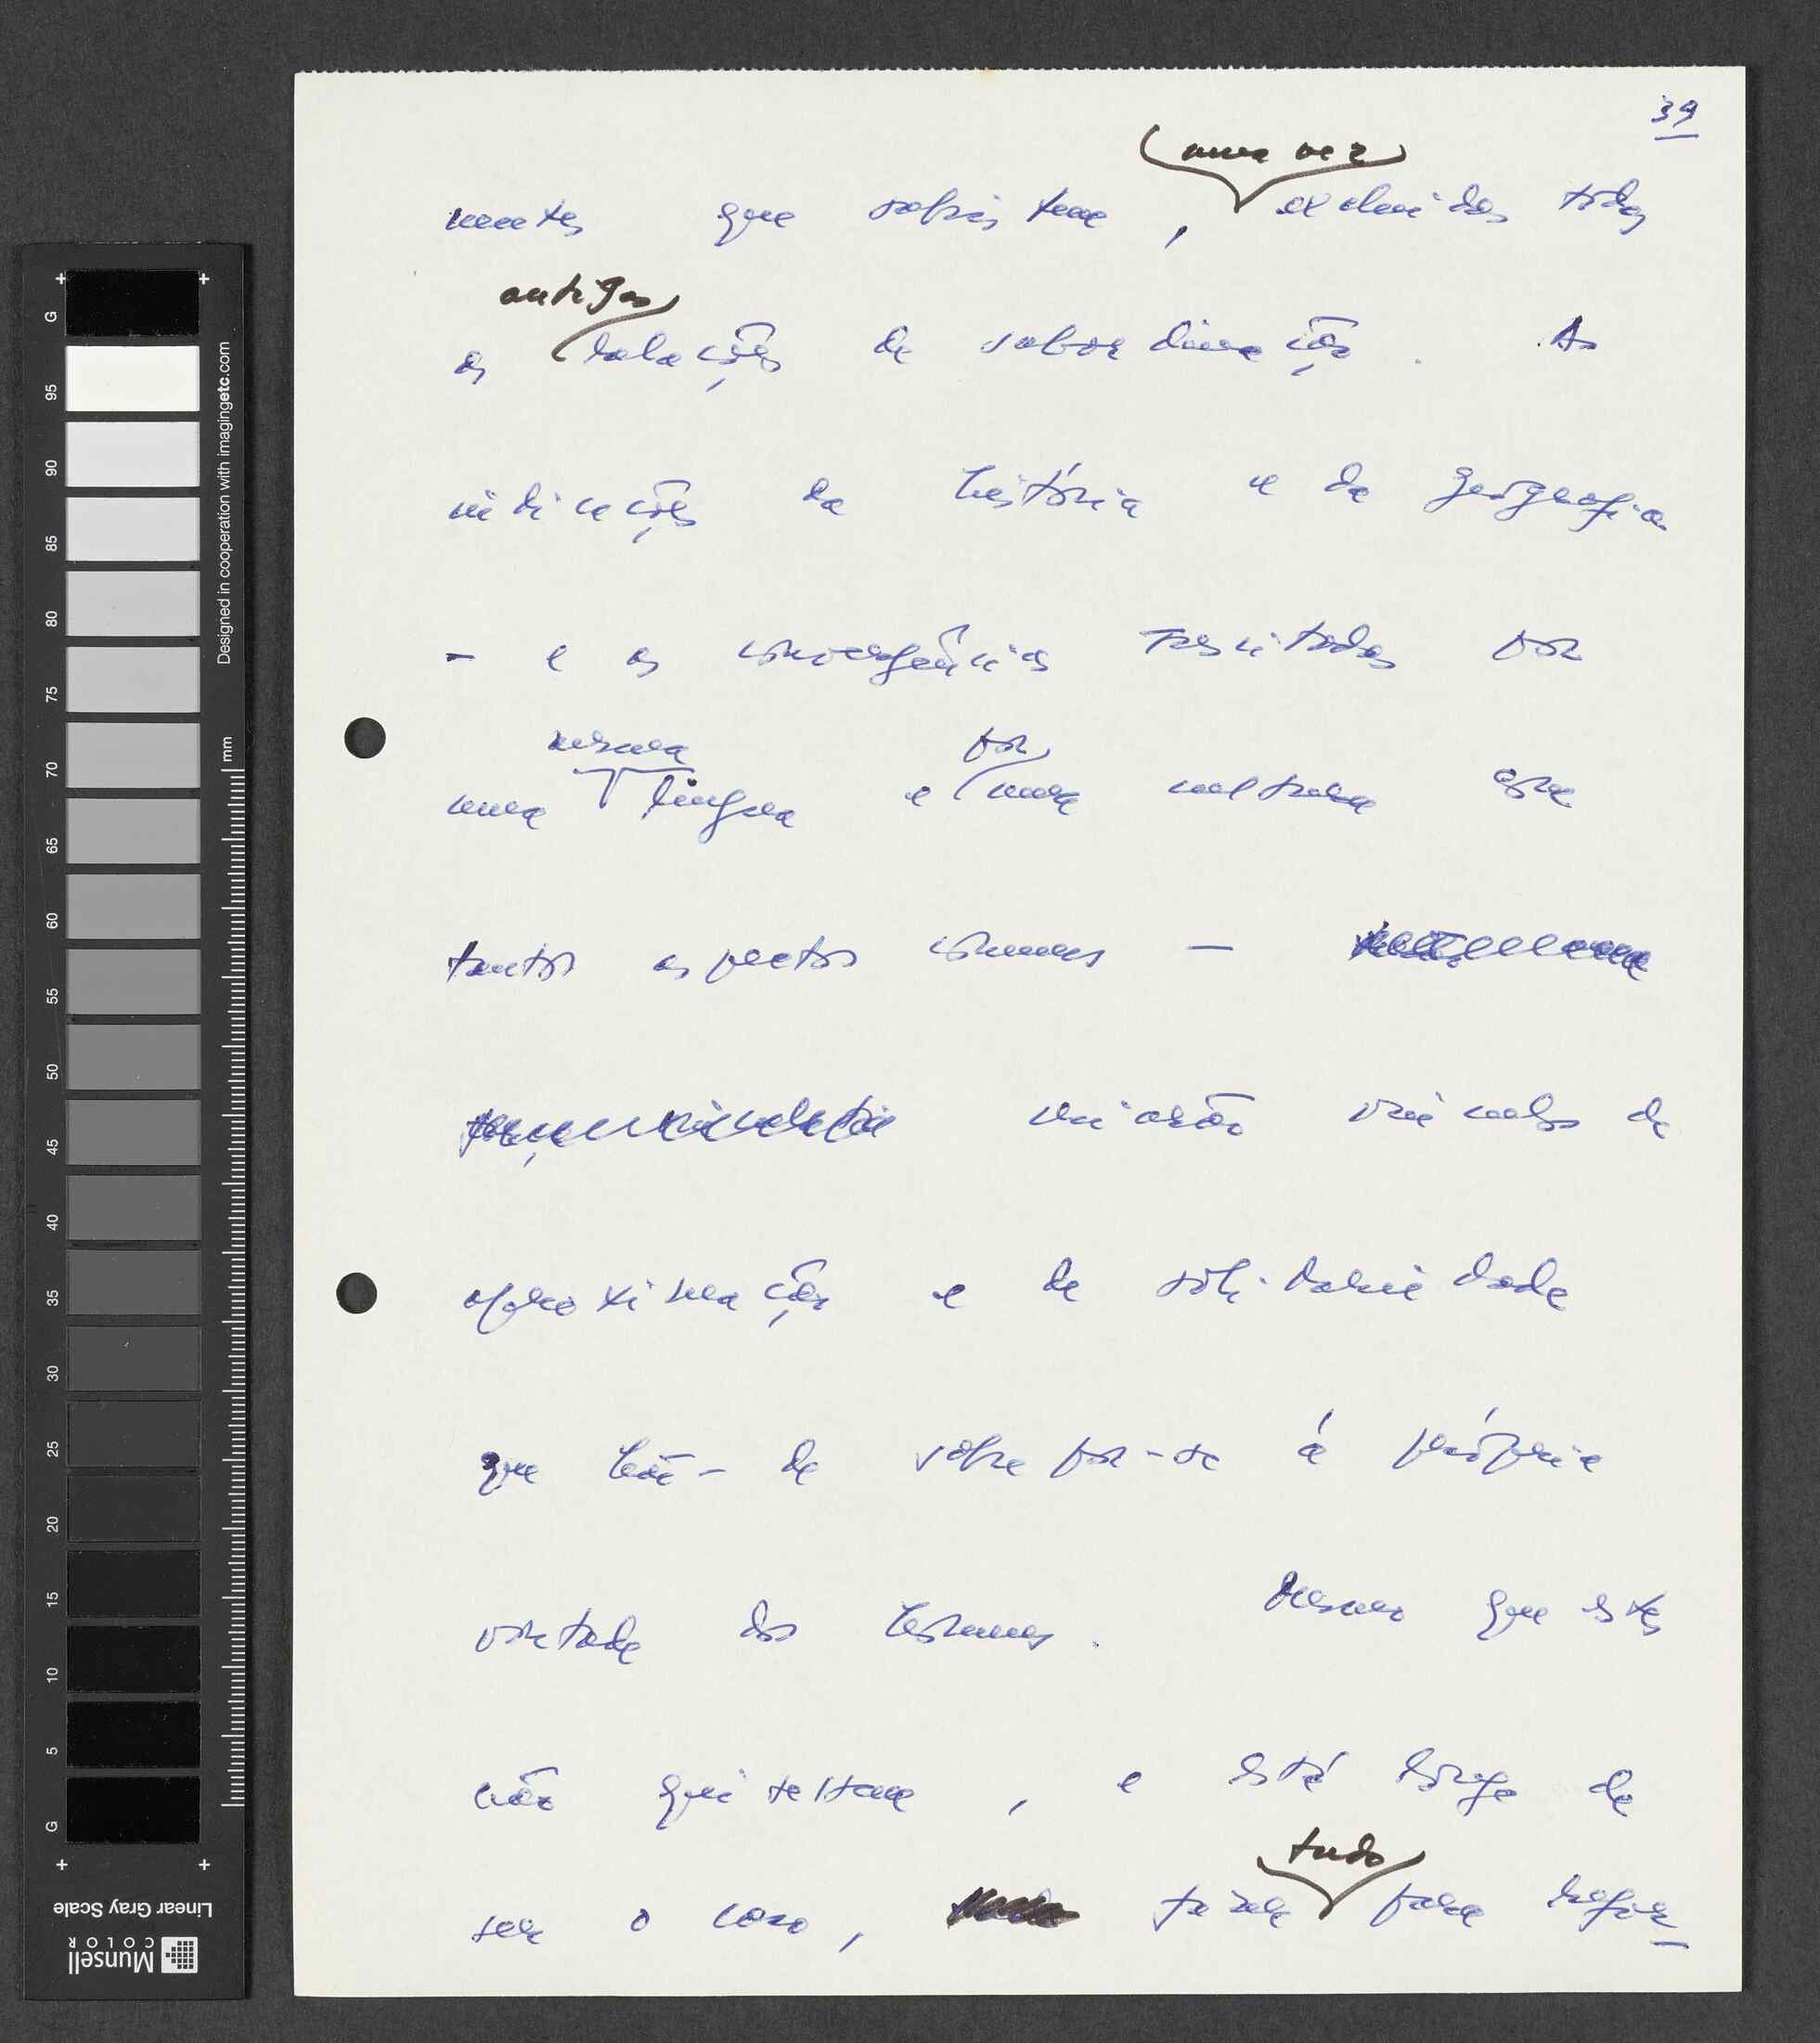 39
uma vez
mentes que subsistem, excluidas todas
antigas
as relações de subordinação. As
indicações da história e da geografia
- e as convergências suscitadas por
mesma por
uma língua e uma cultura em
tantos aspectos comuns -
criarão vínculos de
aproximação e de solidariedade
que hão-de sobrepor-se à própria
vontade dos homens. Mesmo que estes
não quisessem, e está longe de
tudo
ser o caso, fara refor-
G
95
90
85
80
75
70
65
60
55
50
45
40
35
30
25
20
15
10
5
G
Designed in cooperation with imagingetc.com
mm
Linear Gray Scale
Munsell
COLOR